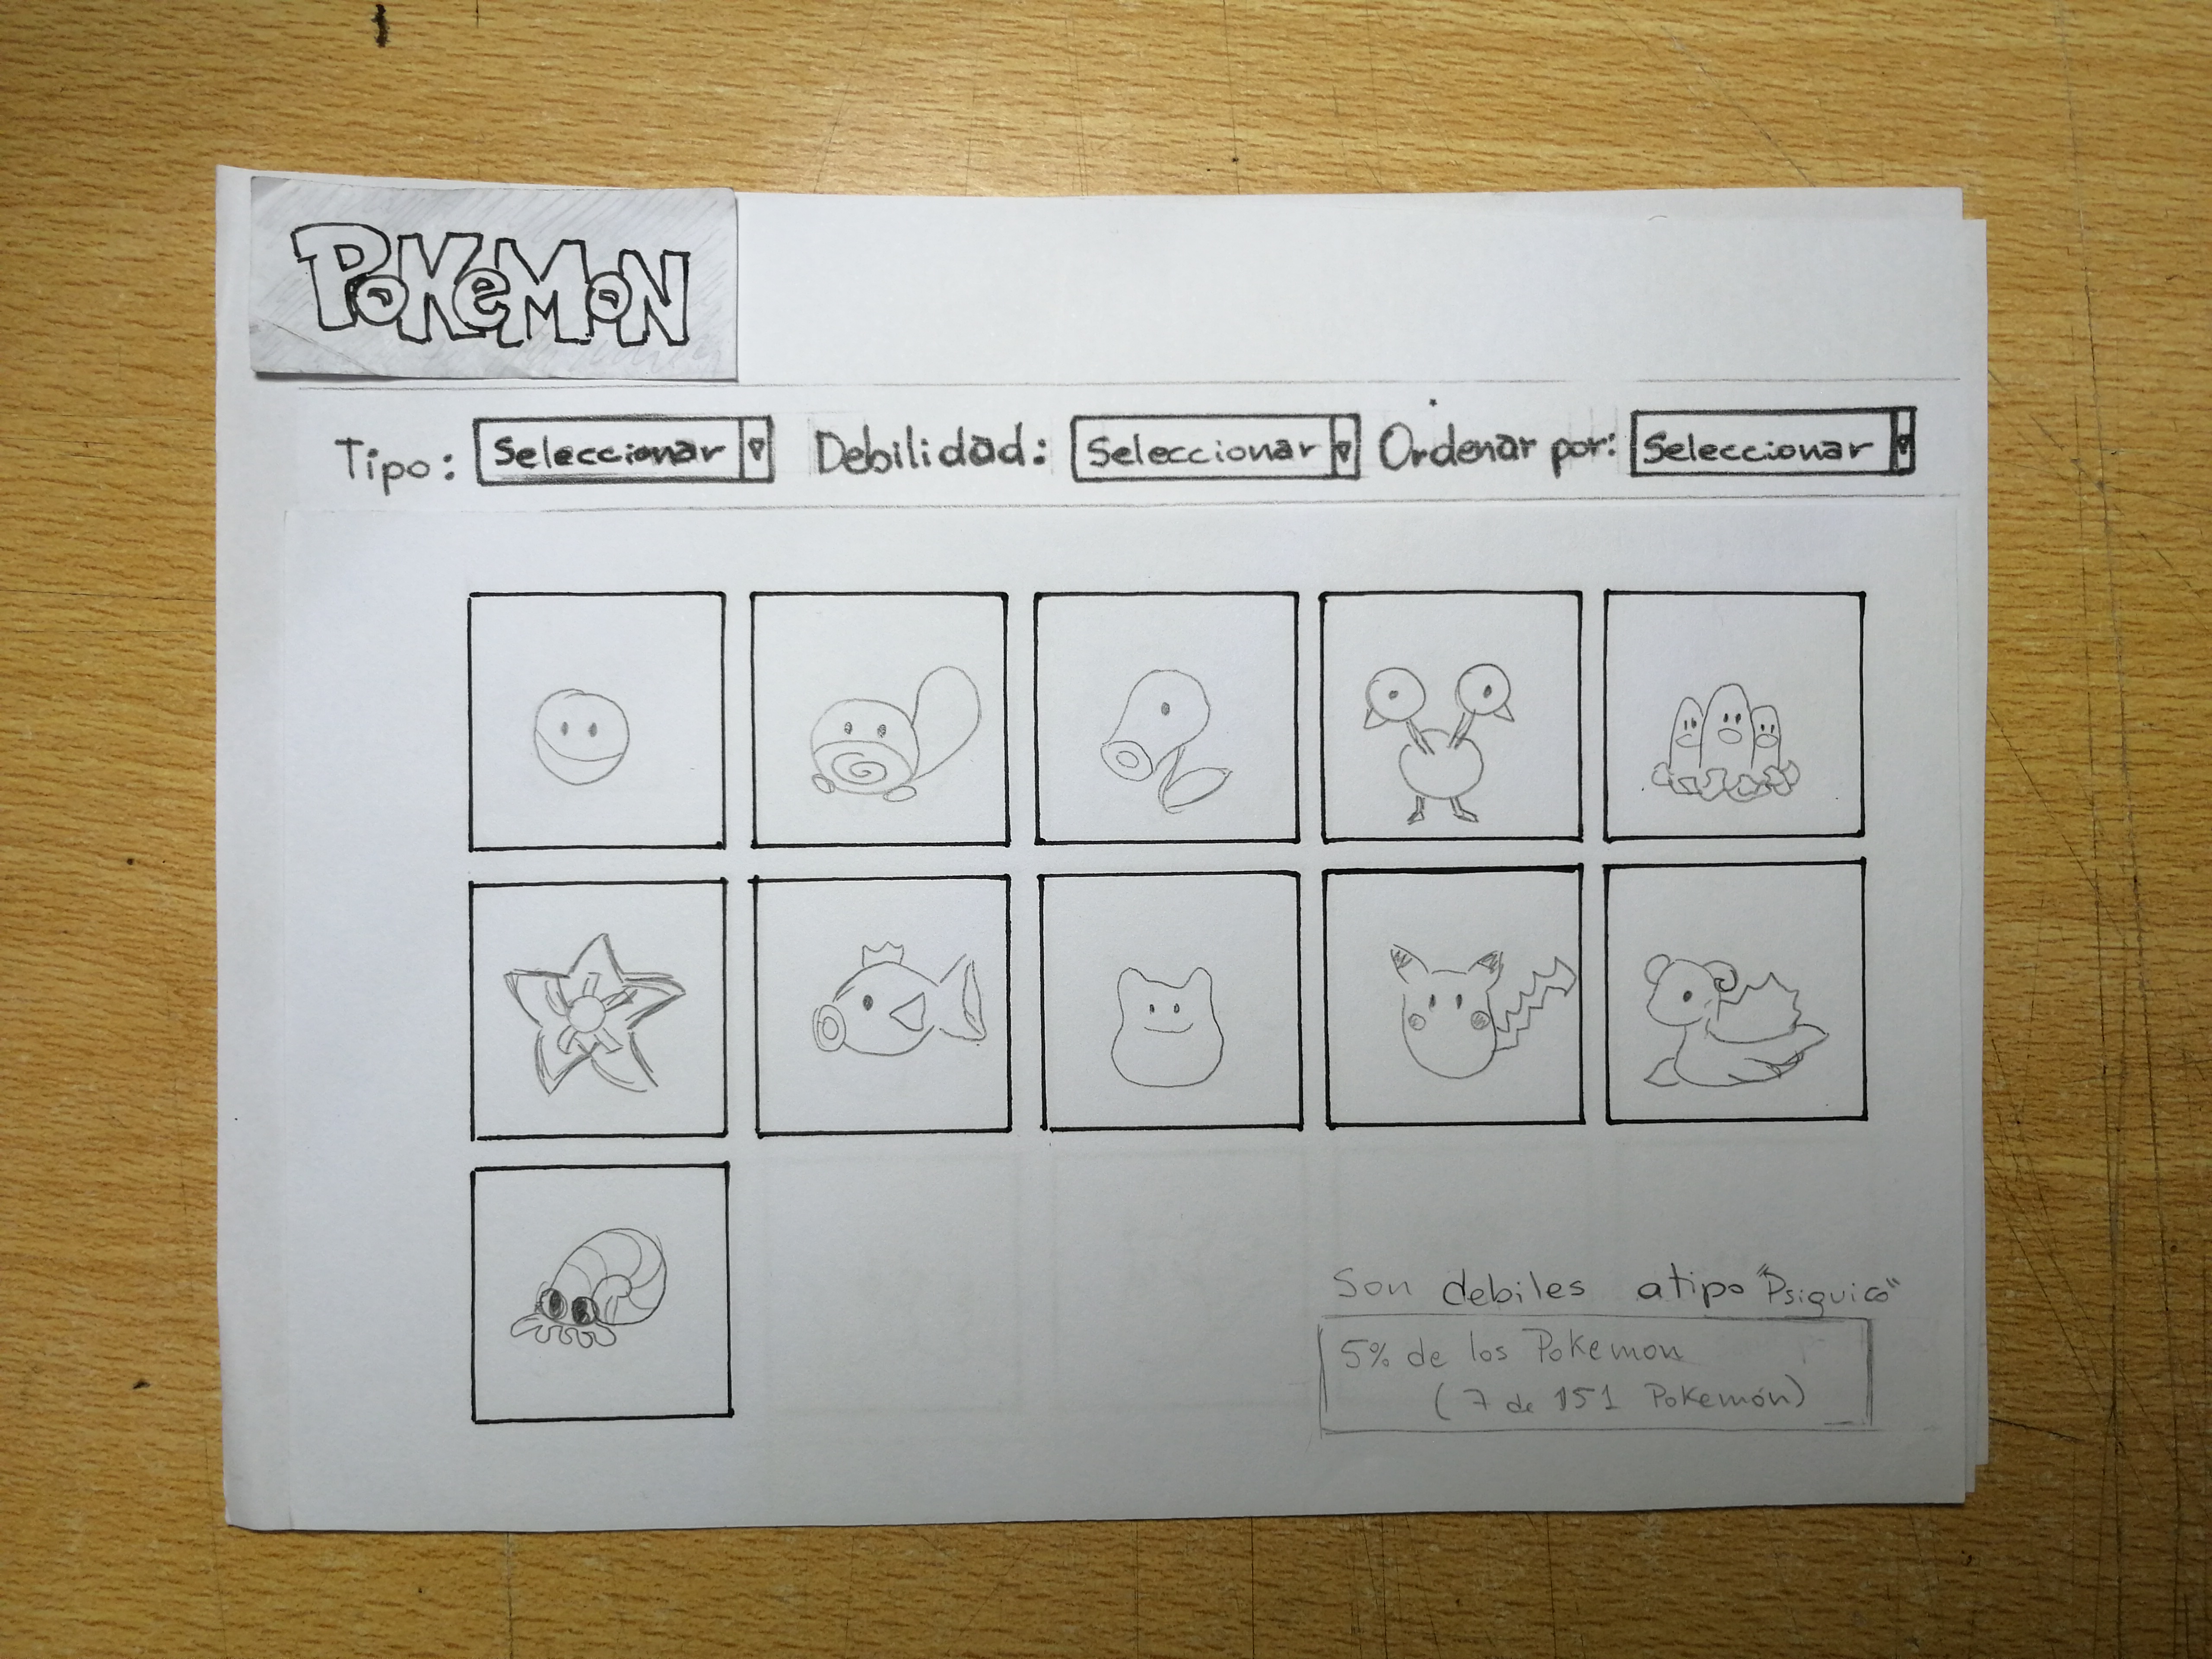 PoKeMoN
Tipo: Seleccionar Debilidad: Seleccionar Ordenar por: Seleccionar
Son debiles a tipo "Psiquico"
5% de los Pokemon
(7 de 151 Pokemón)